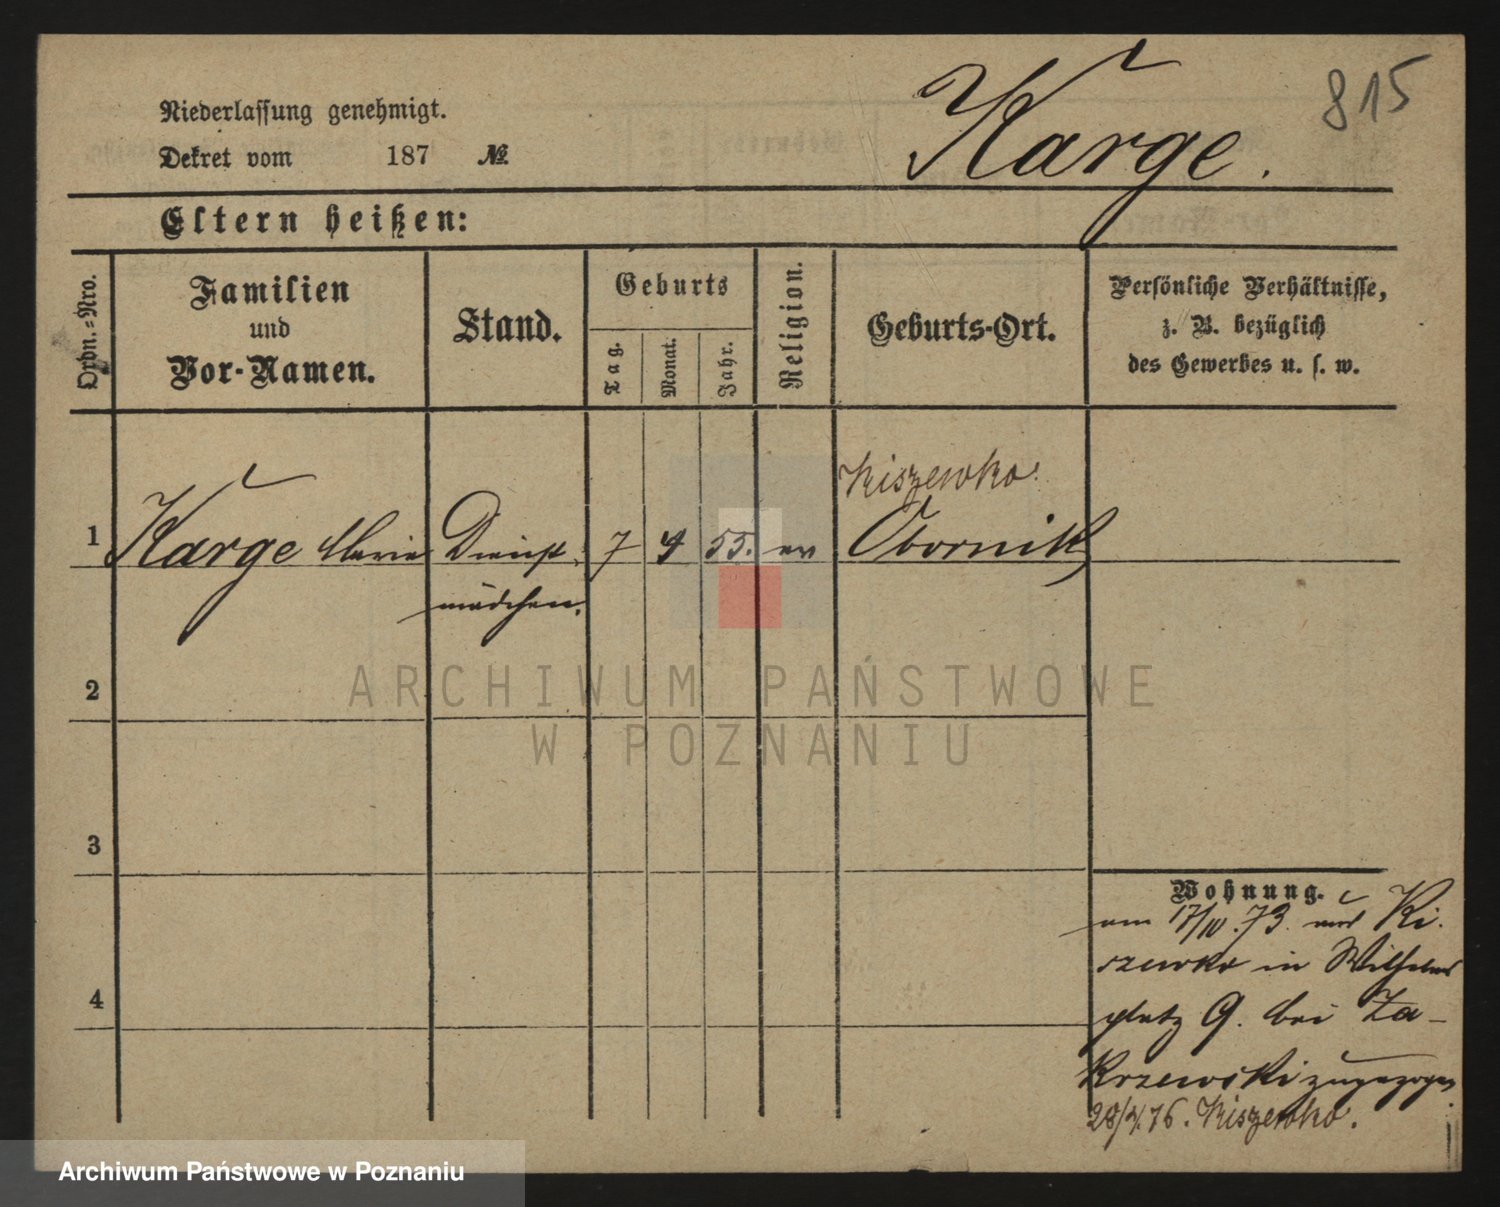 815
Karge.
Niederlassung genehmigt.
Dekret vom 187 №
Eltern heißen:
Ordn.=Nro.
Familien
und
Vor-Namen.
Stand.
Geburts
Tag.
Monat.
Jahr.
Religion.
Geburts-Ort.
Persönliche Verhältnisse,
z. B. bezüglich
des Gewerbes u. s. w.
Kiszewko.
1 Karge Marie Dienst 7 4 55. ev Obornik
mädchen.
2
3
4
Wohnung.
am 17/IV. 73. aus Ki.
szewko in Wilhelms
platz 9. bei Za-
krzewski zugezogen.
28/4.76. Kiszewko.
ARCHIWUM PAŃSTWOWE
W POZNANIU
Archiwum Państwowe w Poznaniu